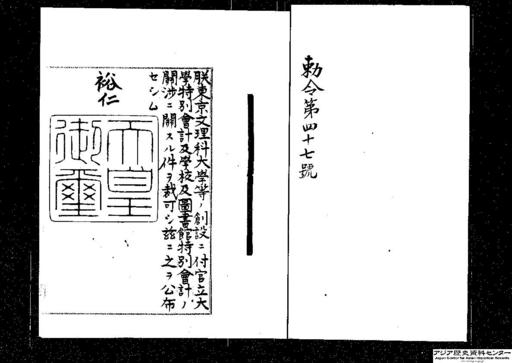 勅令第四十七號
朕東京文理科大學等ノ創設ニ付官立大
學特別會計及學校及圖書館特別會計ノ
關涉ニ關スル件ヲ裁可シ茲ニ之ヲ公布
セシム
裕仁
天皇
御璽
アジア歴史資料センター
Japan Center for Asian Historical Records